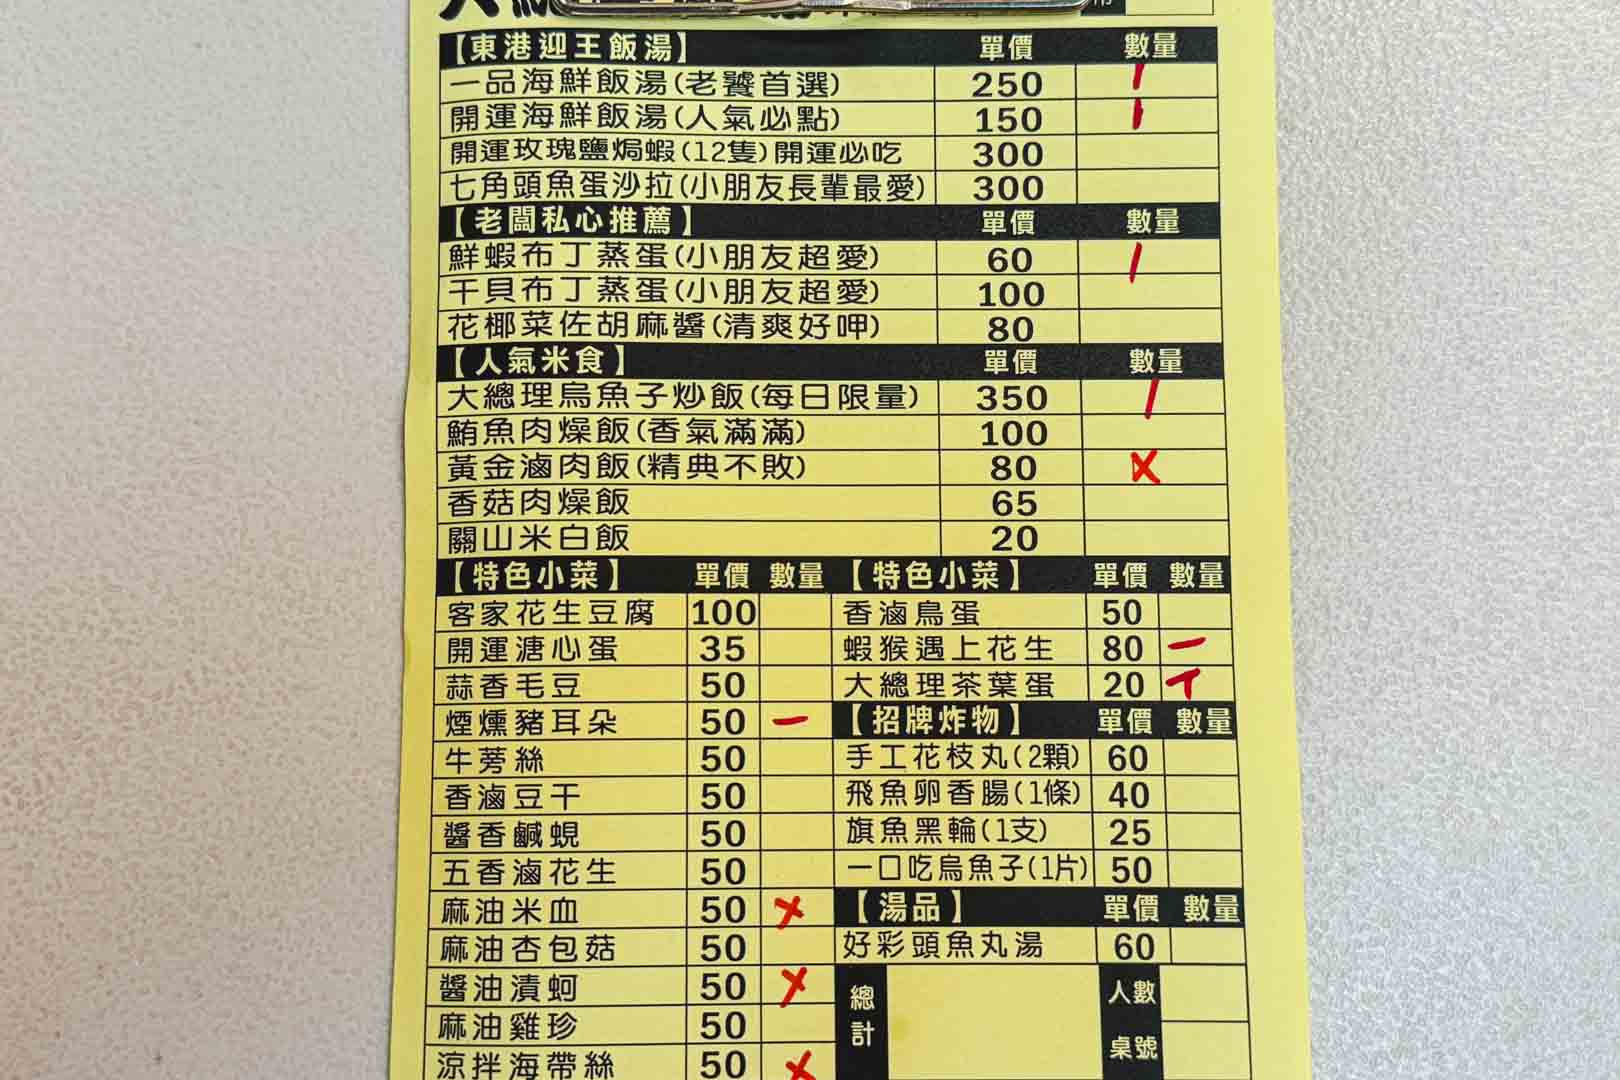 【東港迎王飯湯】 單價 數量
一品海鮮飯湯(老饕首選) 250
開運海鮮飯湯(人氣必點) 150
開運玫瑰鹽焗蝦(12隻)開運必吃 300
七角頭魚蛋沙拉(小朋友長輩最愛) 300
【老闆私心推薦】 單價 數量
鮮蝦布丁蒸蛋(小朋友超愛) 60
干貝布丁蒸蛋(小朋友超愛) 100
花椰菜佐胡麻醬(清爽好呷) 80
【人氣米食】 單價 數量
大總理烏魚子炒飯(每日限量) 350
鮪魚肉燥飯(香氣滿滿) 100
黃金滷肉飯(精典不敗) 80
香菇肉燥飯 65
關山米白飯 20
【特色小菜】 單價 數量 【特色小菜】 單價 數量
客家花生豆腐 100 香滷鳥蛋 50
開運溏心蛋 35 蝦猴遇上花生 80
蒜香毛豆 50 大總理茶葉蛋 20
煙燻豬耳朵 50 【招牌炸物】 單價 數量
牛蒡絲 50 手工花枝丸(2顆) 60
香滷豆干 50 飛魚卵香腸(1條) 40
醬香鹹蜆 50 旗魚黑輪(1支) 25
五香滷花生 50 一口吃烏魚子(1片) 50
麻油米血 50 【湯品】 單價 數量
麻油杏包菇 50 好彩頭魚丸湯 60
醬油漬蚵 50 總計 人數
麻油雞珍 50 桌號
涼拌海帶絲 50